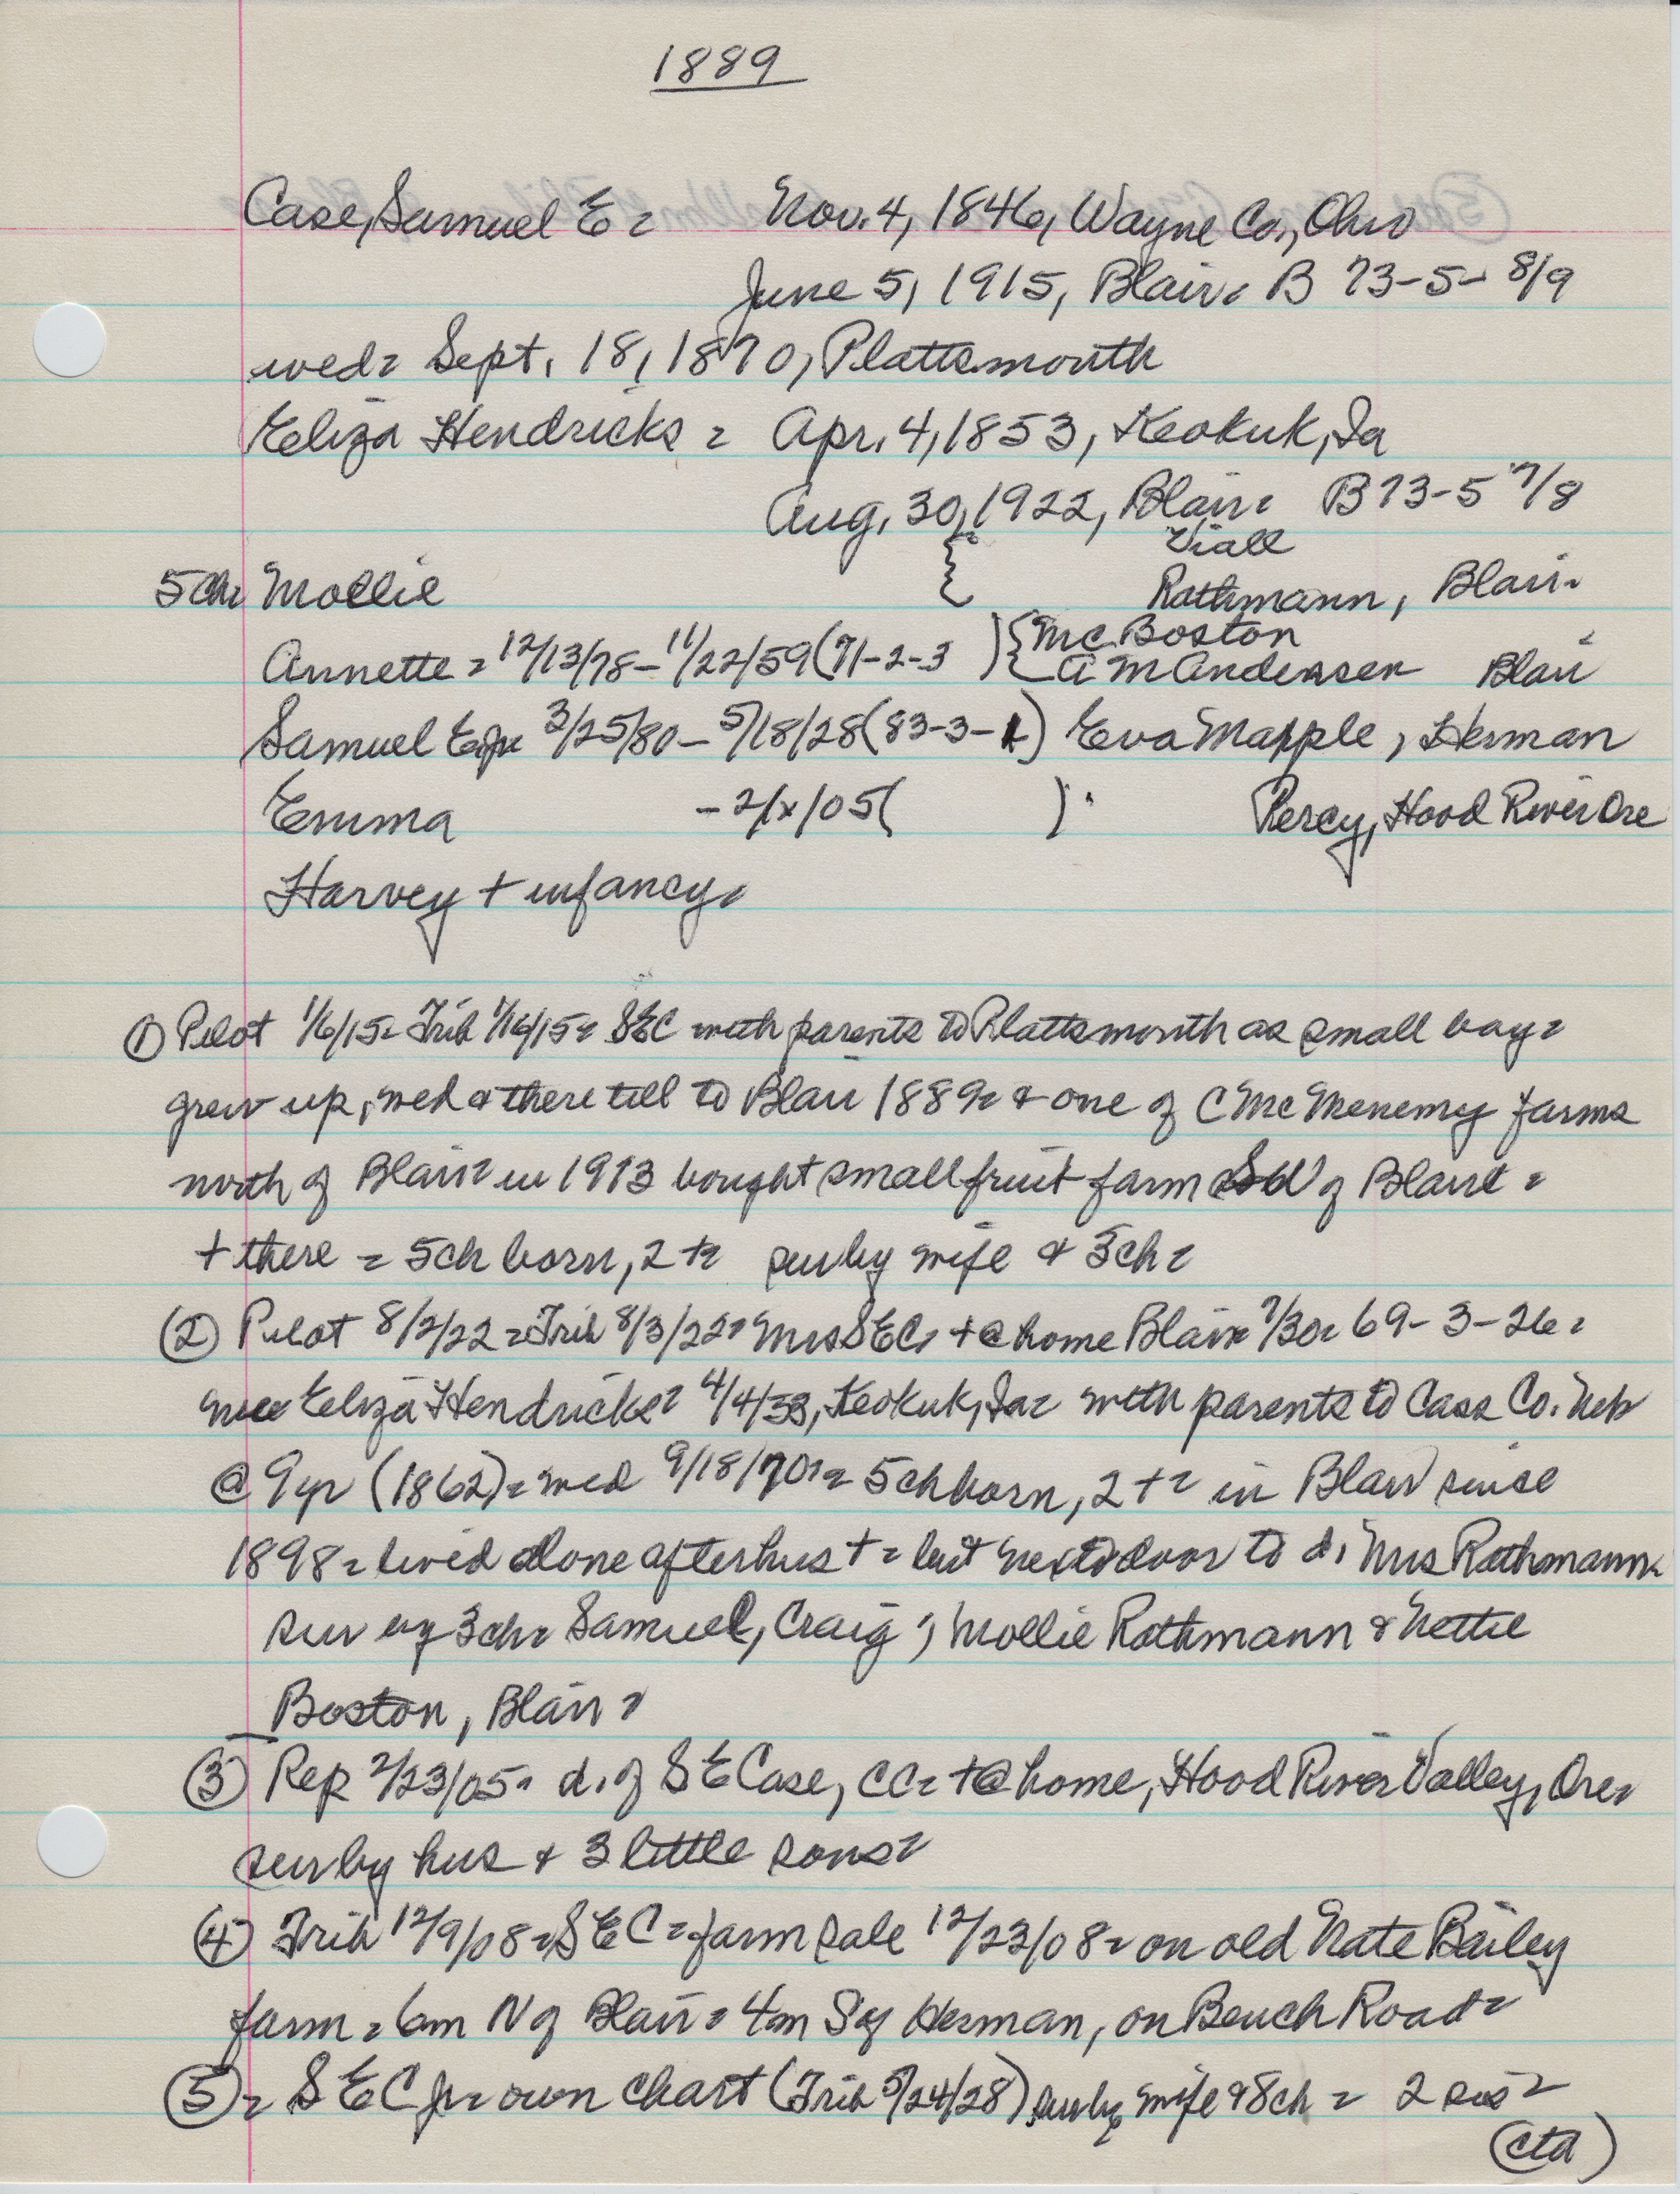 1889
Case, Samuel E = Nov. 4, 1846, Wayne Co., Ohio
June 5, 1915, Blair = B 73-5- 8/9
wed = Sept. 18, 1870, Plattsmouth
Eliza Hendricks = Apr. 4, 1853, Keokuk, Ia
Aug. 30, 1922, Blair = B 73-5 7/8
Viall
5 ch = Mollie { Rathmann, Blair =
Annette = 12/13/78 - 11/22/59 (71-2-3 ) { Mc Boston
A M Andersen Blair
Samuel E Jr 3/25/80 - 5/18/28 (83-3-1) Eva Mapple, Herman
Emma - 2/x/05 ( ) Percy, Hood River Ore
Harvey + infancy =
① Pilot 1/6/15 = Trib 1/16/15 = SEC with parents to Plattsmouth as small boy =
grew up, wed & there till to Blair 1889 = & one of C McMenemy farms
north of Blair = in 1913 bought small fruit farm SW of Blair =
+ there = 5 ch born, 2 + = sur by wife & 3 ch =
② Pilot 8/2/22 = Trib 8/3/22 = Mrs SEC, + @ home Blair 7/30 = 69-3-26 =
nee Eliza Hendricks = 4/4/53, Keokuk, Ia = with parents to Cass Co. Neb
@ 9 yr (1862) = wed 9/18/70 = 5 ch born, 2 + = in Blair since
1898 = lived alone after hus + = but next door to d. Mrs Rathmann =
sur by 3 ch = Samuel, Craig ; Mollie Rathmann & Nettie
Boston, Blair =
③ Rep 2/23/05 = d. of S E Case, CC = + @ home, Hood River Valley, Ore =
sur by hus & 3 little sons =
④ Trib 12/9/08 = SEC = farm sale 12/23/08 = on old Nate Bailey
farm = 6m N of Blair = 4m S of Herman, on Bench Road =
⑤ = S E C Jr = own chart (Trib 5/24/28) sur by wife & 8 ch = 2 sis =
(ctd)